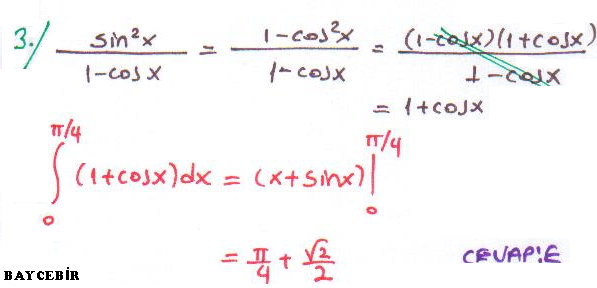 3./ sin²x / 1-cosx = 1-cos²x / 1-cosx = (1-cosx)(1+cosx) / 1-cosx
= 1+cosx
∫₀^π/4 (1+cosx)dx = (x+sinx) |₀^π/4
= π/4 + √2/2
CEVAP:E
BAYCEBİR